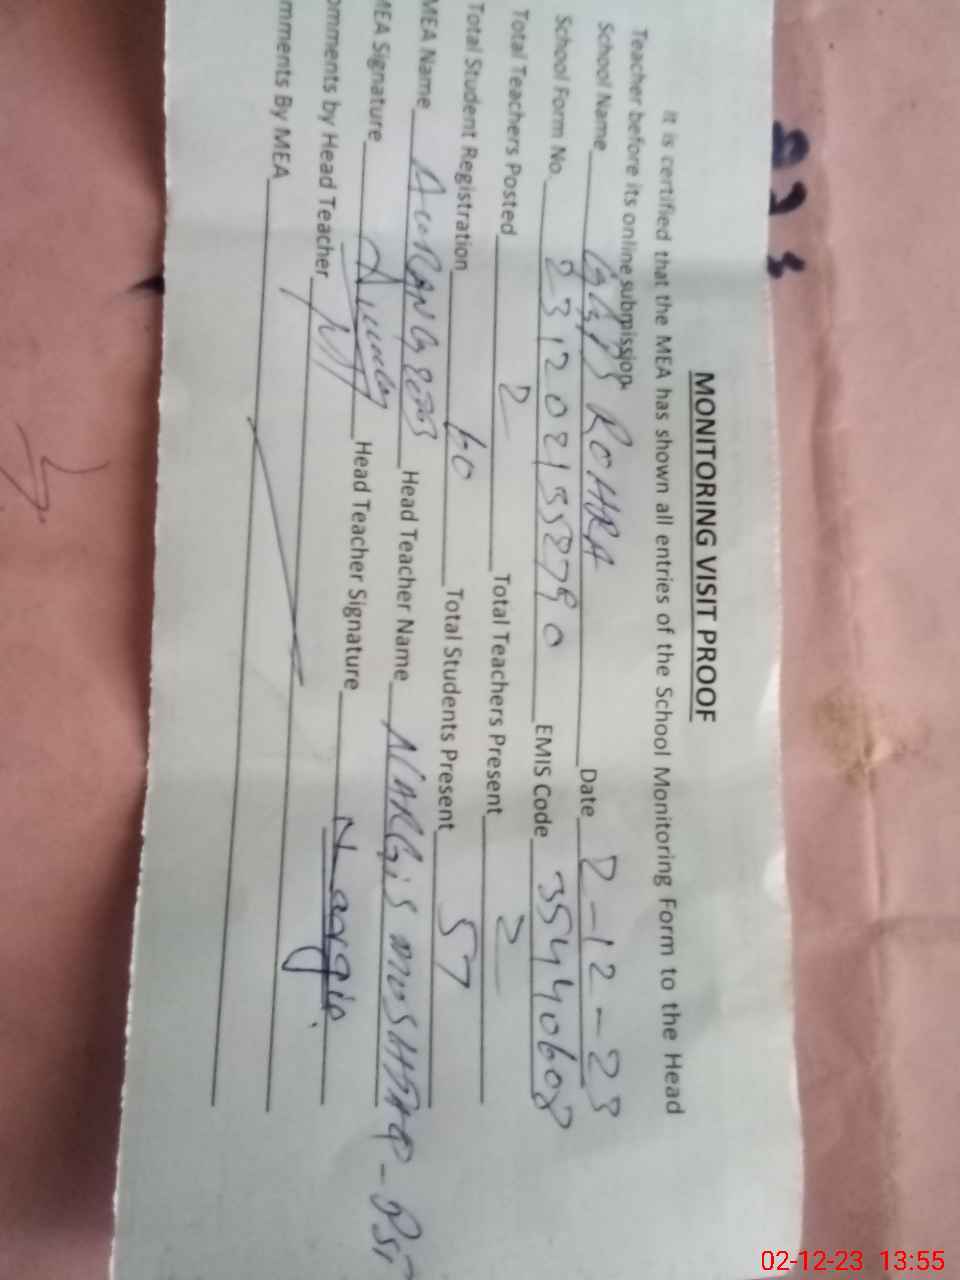 MONITORING VISIT PROOF
It is certified that the MEA has shown all entries of the School Monitoring Form to the Head
Teacher before its online submission.
School Name GGPS ROHRA Date 2-12-23
School Form No. EMIS Code 35440608
Total Teachers Posted 2 Total Teachers Present 2
Total Student Registration 60 Total Students Present 57
MEA Name AURANGZEB Head Teacher Name NARGIS MUSHTAQ - PST
MEA Signature Head Teacher Signature Nargis.
omments by Head Teacher
mments By MEA
02-12-23 13:55